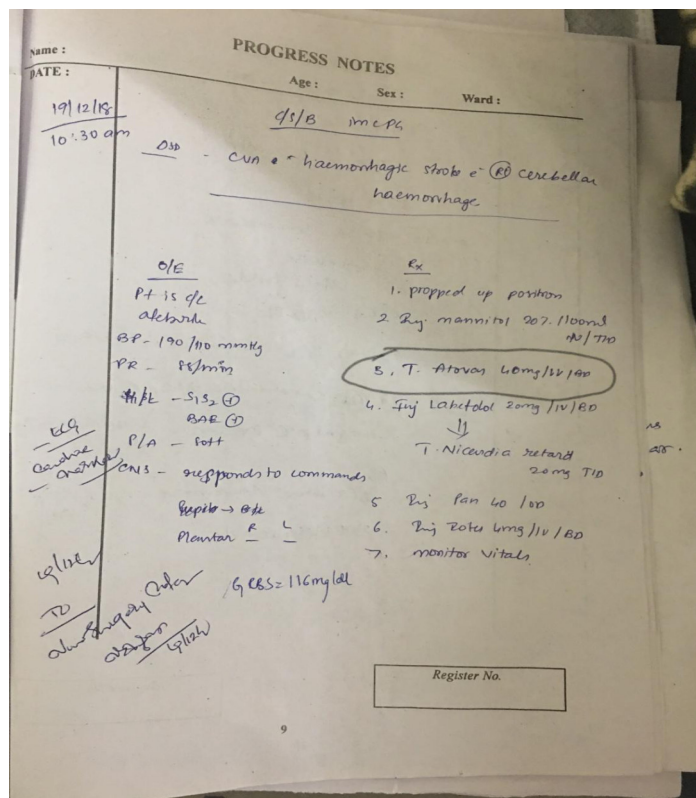 PROGRESS NOTES
Name :
DATE :
Age :
Sex :
Ward :
19/12/18
10:30 am
C/S/B IMCPG
CVA haemorrhagic stroke c̄ Rt cerebellar
haemorrhage
O/E
Pt is c/c
afebrile
BP - 190/110 mmHg
PR - 88/min
H/L - S1S2 ⊕
BAE ⊕
P/A - Soft
CNS - responds to commands
Plantar R L
GRBS = 116 mg/dl
Rx
1. propped up position
2. Inj. mannitol 20% /100ml
IV/TID
3. T. Atovas 40mg/IV/BD
4. Inj Labetolol 20mg/IV/BD
T. Nicardia retard
20mg TID
5 Inj Pan 40/OD
6. Inj Zofer 4mg/IV/BD
7. monitor vitals
ECG
Cardiac
markers
Register No.
9